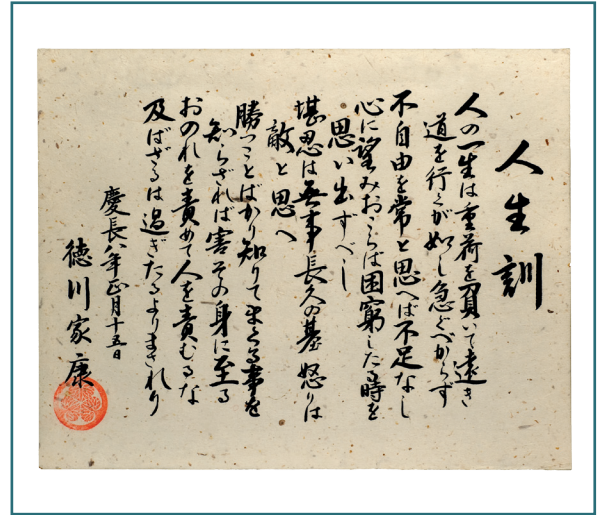 人生訓
人の一生は重荷を負いて遠き
道を行くが如し急ぐべからず
不自由を常と思へば不足なし
心に望みおこらば困窮したる時を
思い出ずべし
堪忍は無事長久の基怒りは
敵と思へ
勝つことばかり知りてまくる事を
知らざれば害その身に至る
おのれを責めて人を責むるな
及ばざるは過ぎたるよりまされり
慶長八年正月十五日
徳川家康